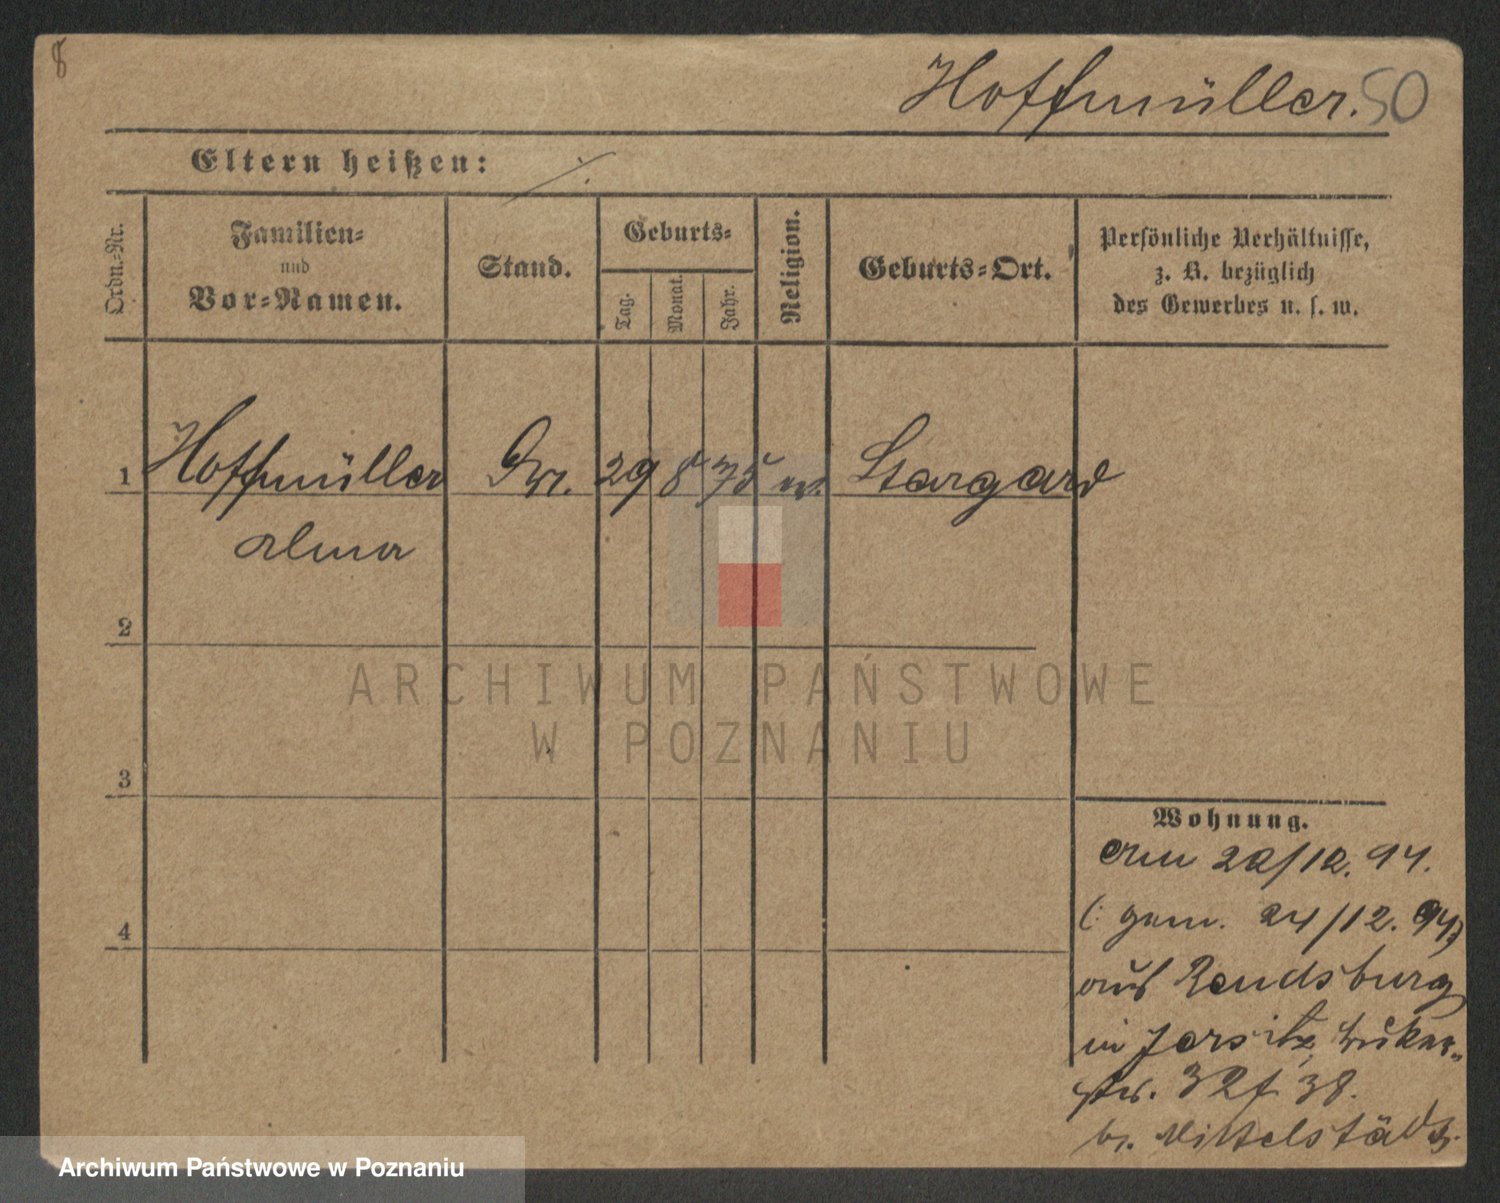 8
Hoffmüller. 50
Eltern heißen: ./.
Ordn.-Nr.
Familien-
und
Vor-Namen.
Stand.
Geburts-
Tag.
Monat.
Jahr.
Religion.
Geburts-Ort.
Persönliche Verhältnisse,
z. B. bezüglich
des Gewerbes u. s. w.
1 Hoffmüller 29 8 75 ev. Stargard
Alma
2
3
4
Wohnung.
am 22/12. 94.
(: gem. 24/12. 94 :)
aus Rendsburg
in Jersitz
str. 38.
b. Mittelstädt
ARCHIWUM PAŃSTWOWE
W POZNANIU
Archiwum Państwowe w Poznaniu